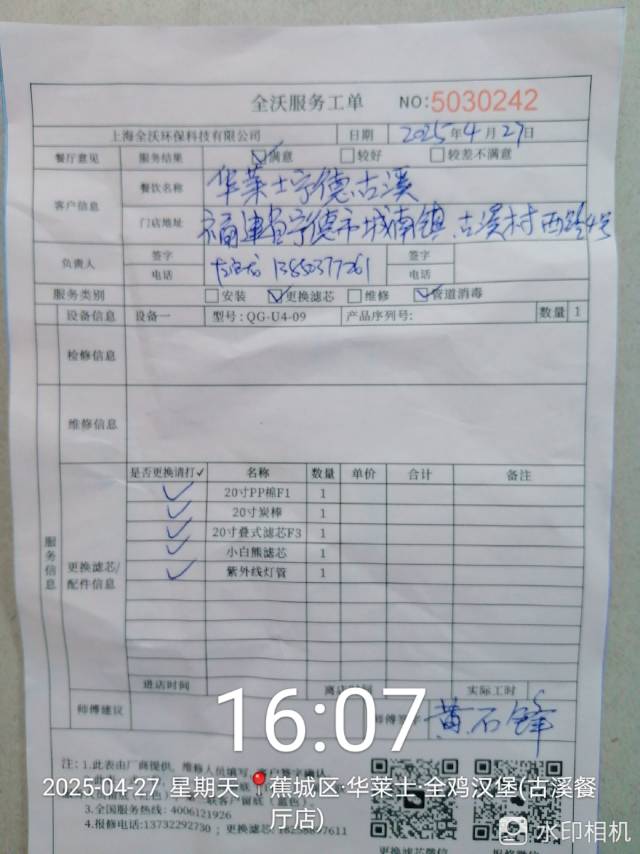 全沃服务工单 NO:5030242
上海全沃环保科技有限公司 日期 2025年4月27日
餐厅意见 服务结果 ☑满意 □较好 □较差不满意
客户信息 餐饮名称 华莱士宁德古溪
门店地址 福建省宁德市城南镇古溪村西路4号
负责人 签字 签字
电话 电话
服务类别 □安装 ☑更换滤芯 □维修 ☑管道消毒
设备信息 设备一 型号:QG-U4-09 产品序列号: 数量 1
检修信息
维修信息
服务信息
更换滤芯/配件信息
是否更换请打✓ 名称 数量 单价 合计 备注
✓ 20寸PP棉F1 1
✓ 20寸炭棒 1
✓ 20寸叠式滤芯F3 1
✓ 小白熊滤芯 1
✓ 紫外线灯管 1
进店时间 实际工时
师傅建议 黄石锋
16:07
注: 1.此表由厂商提供,维修人员填写
2025-04-27 星期天 蕉城区·华莱士·全鸡汉堡(古溪餐
厅店)
3.全国服务热线: 4006121926
4.报修电话:13732292730;
水印相机